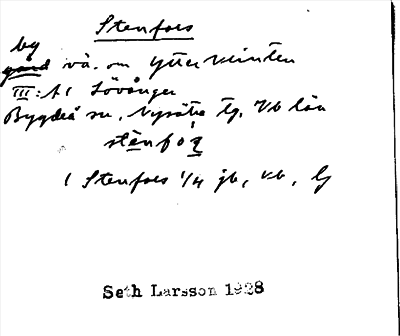 Stenfors
by
gård vä. om Ytterklinten
III: A1 Lövånger
Bygdeå sn, Nysätra tg, Vb län
stènfóṣ
1 Stenfors 1/4 jb, kb, lg
Seth Larsson 1928